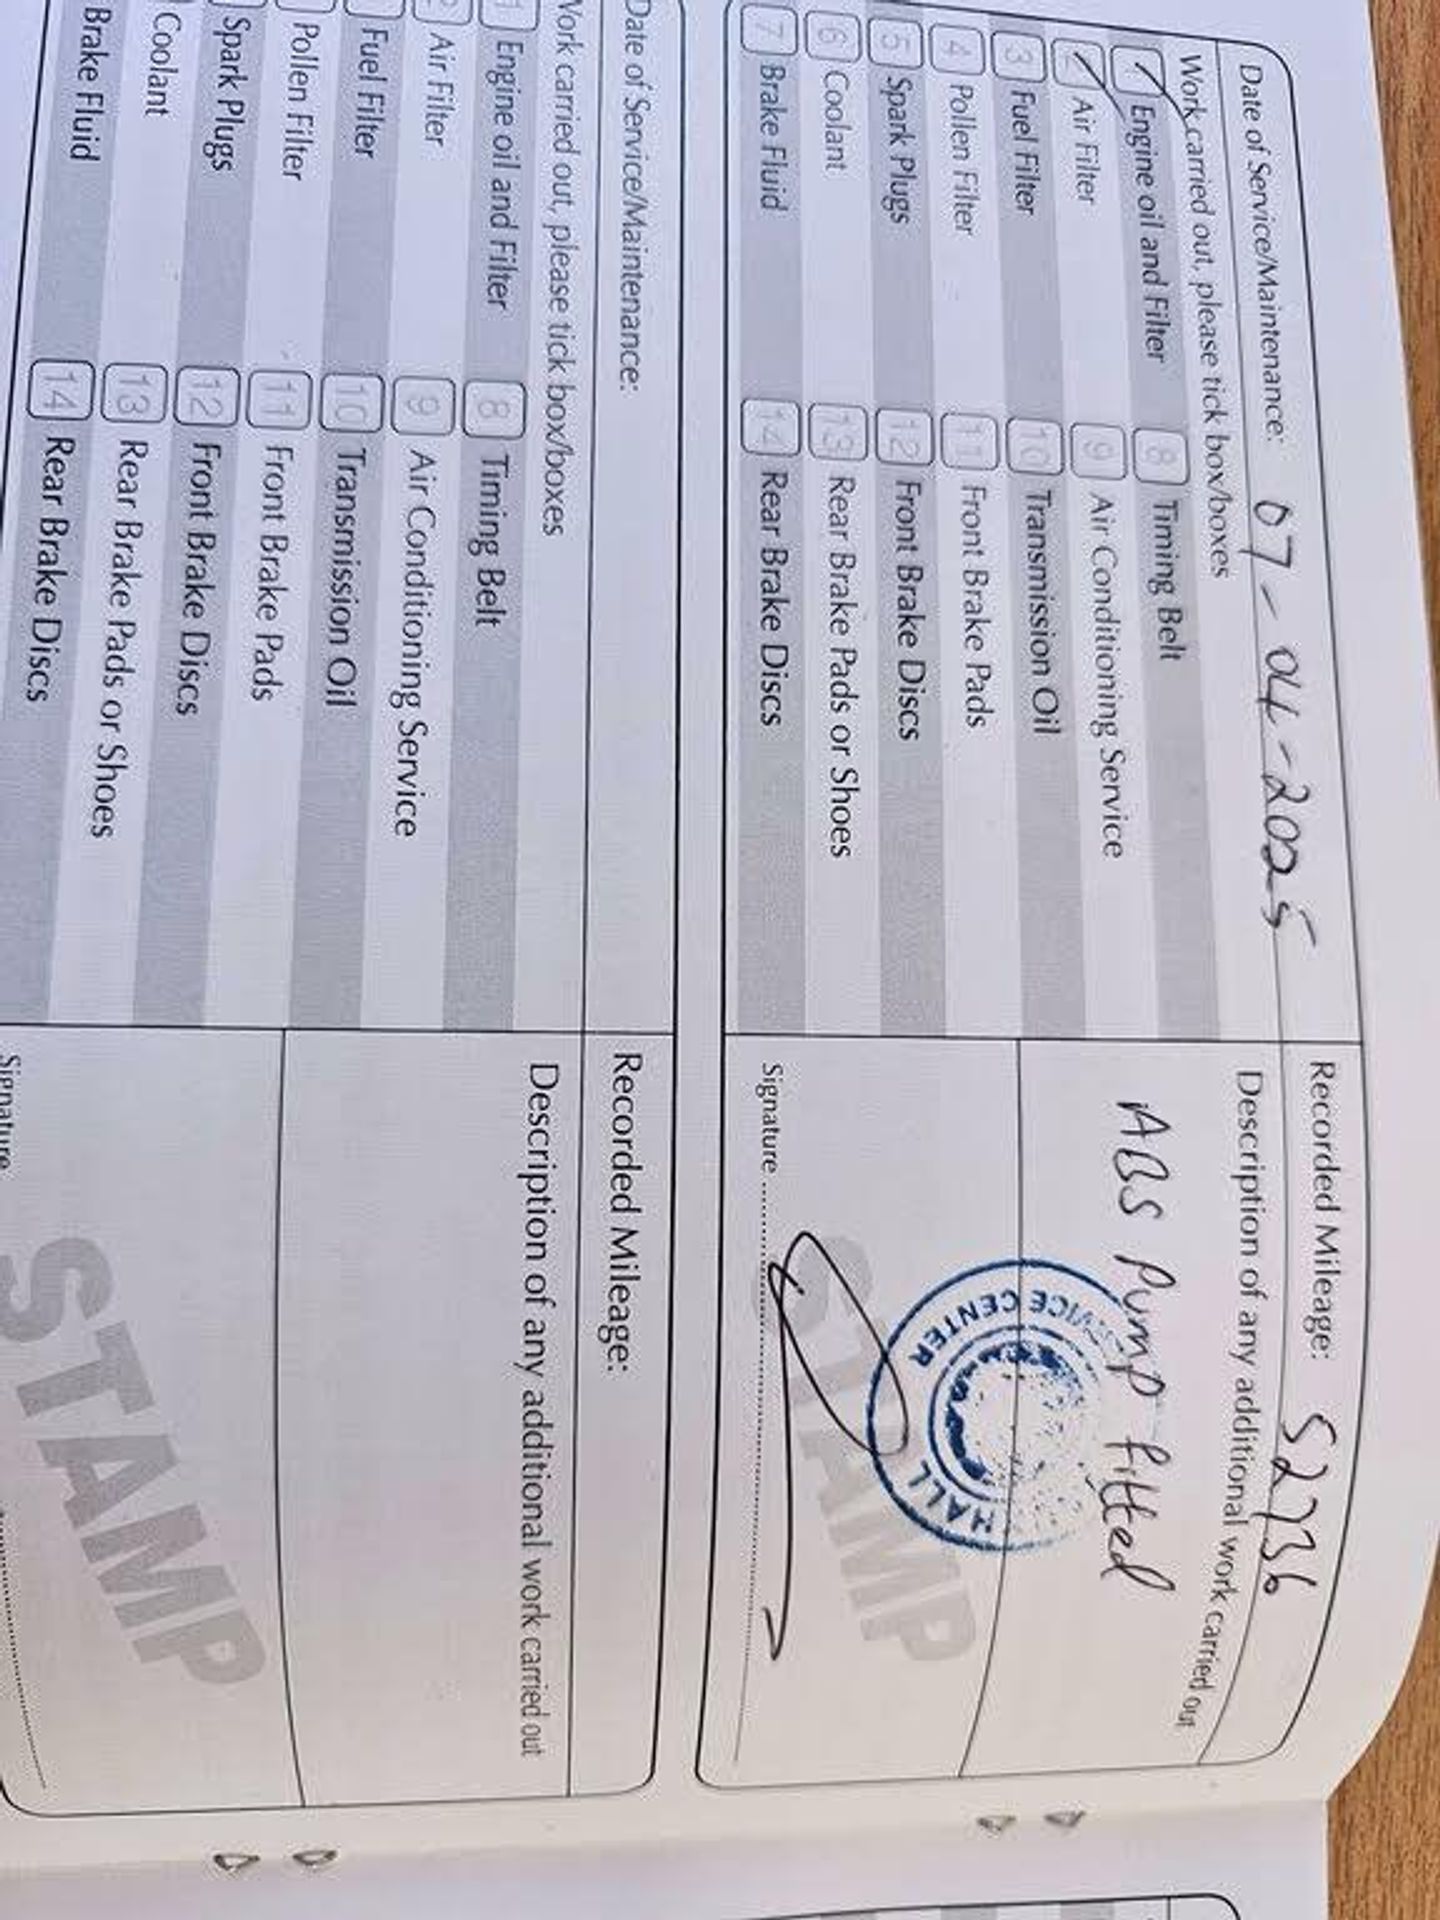 Date of Service/Maintenance: 07-04-2025 Recorded Mileage: 52736
Work carried out, please tick box/boxes Description of any additional work carried out
1 Engine oil and Filter 8 Timing Belt
2 Air Filter 9 Air Conditioning Service
3 Fuel Filter 10 Transmission Oil
4 Pollen Filter 11 Front Brake Pads
5 Spark Plugs 12 Front Brake Discs
6 Coolant 13 Rear Brake Pads or Shoes
7 Brake Fluid 14 Rear Brake Discs
ABS Pump fitted
HALL SERVICE CENTER
STAMP
Signature
Date of Service/Maintenance: Recorded Mileage:
Work carried out, please tick box/boxes Description of any additional work carried out
1 Engine oil and Filter 8 Timing Belt
2 Air Filter 9 Air Conditioning Service
Fuel Filter 10 Transmission Oil
Pollen Filter 11 Front Brake Pads
Spark Plugs 12 Front Brake Discs
Coolant 13 Rear Brake Pads or Shoes
Brake Fluid 14 Rear Brake Discs
STAMP
Signature